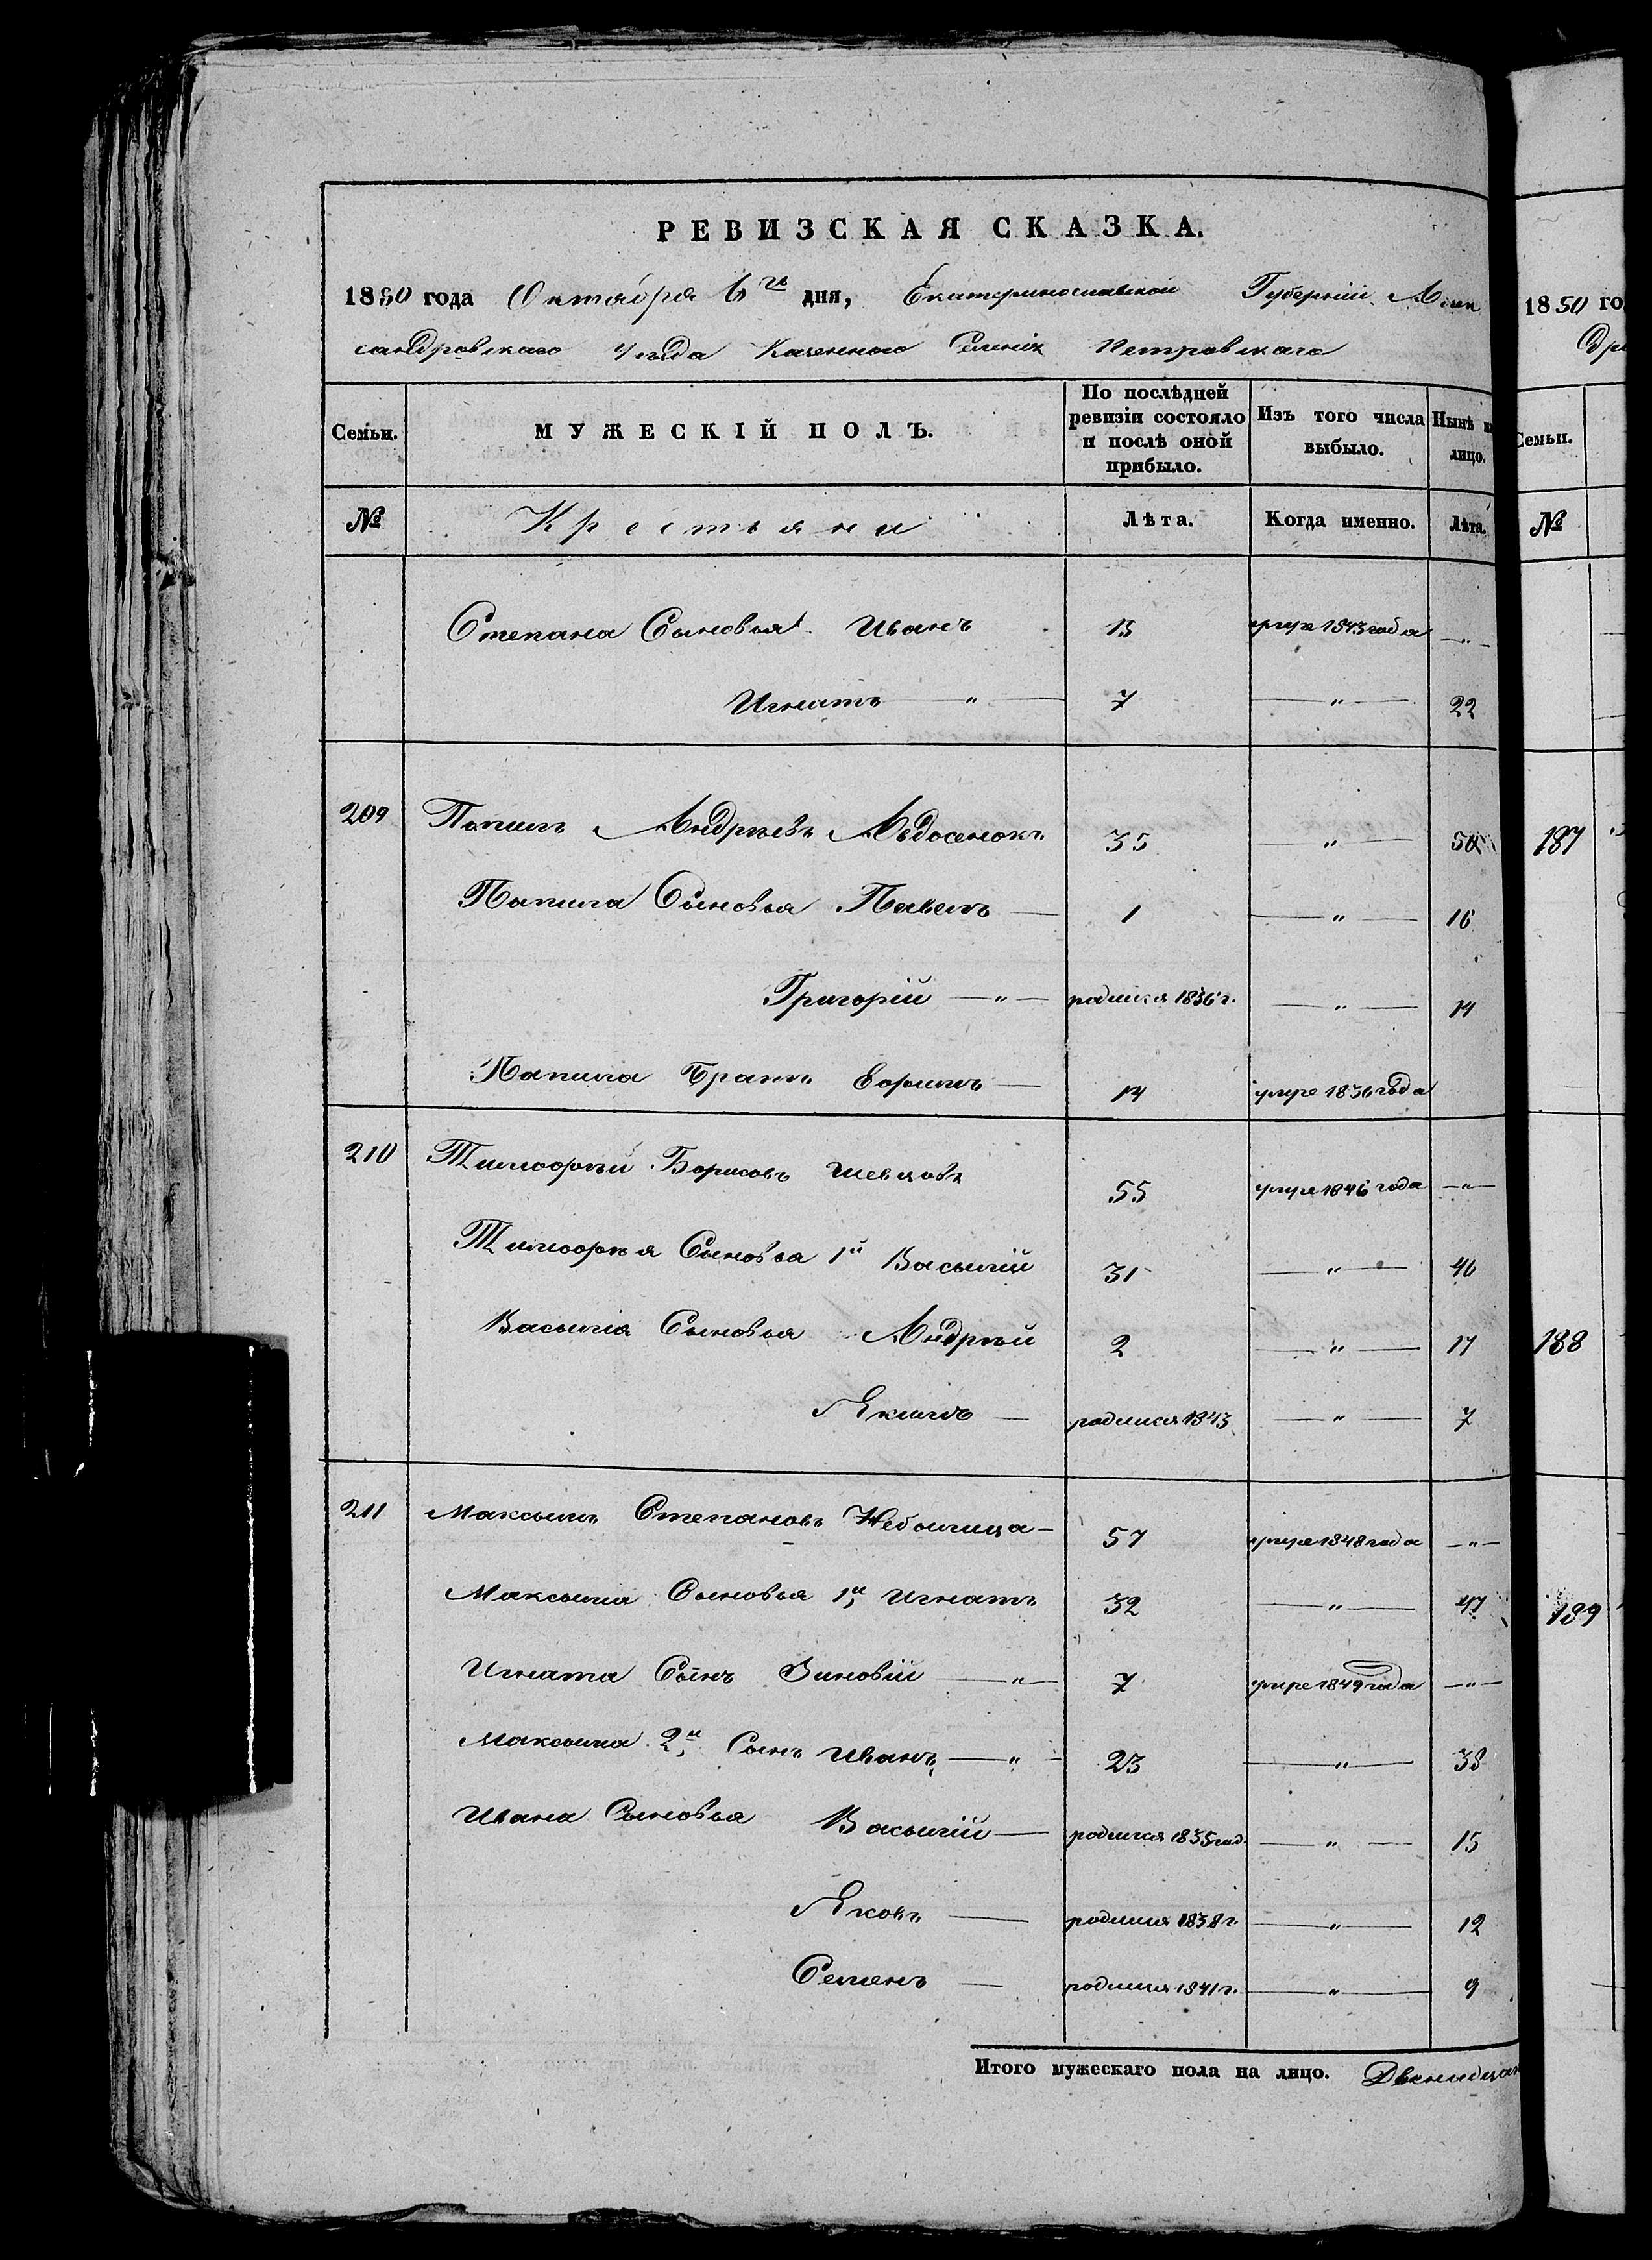 РЕВИЗСКАЯ СКАЗКА.
1850 года Октября 6го дня, Екатеринославской Губерніи Алек
сандровскаго Уѣзда Казеннаго Селенія Петровскаго
Семьи. МУЖЕСКІЙ ПОЛЪ. По послѣдней ревизіи состояло и послѣ оной прибыло. Изъ того числа выбыло. Нынѣ на лицо.
№ Крестьяне Лѣта. Когда именно. Лѣта.
Степана Сыновья Иванъ 15 умре 1843 года — „ —
Игнатъ — „ — 7 — „ — 22
209 Потапъ Андрѣевъ Авдосенокъ 35 — „ — 50
Потапа Сыновья Павелъ — 1 — „ — 16
Григорій — „ — родился 1836 г. — „ — 14
Потапа Братъ Ефимъ — 14 умре 1836 года
210 Тимофѣй Борисовъ Шевцовъ 55 умре 1846 года — „ —
Тимофѣя Сыновья 1й Василій 31 — „ — 46
Василія Сыновья Андрѣй 2 — „ — 17
Якимъ — родился 1843 — „ — 7
211 Максимъ Степановъ Небылица — 57 умре 1848 года — „ —
Максима Сыновья 1й, Игнатъ 32 — „ — 47
Игната Сынъ Зиновій — „ — 7 умре 1849 года — „ —
Максима 2й, Сынъ Иванъ — „ — 23 — „ — 38
Ивана Сыновья Василій — родился 1835 год. — „ — 15
Яковъ — родился 1838 г. — „ — 12
Семенъ — родился 1841 г. — „ — 9
Итого мужескаго пола на лицо. Двенадцат
1850 го
Семьи.
№
187
188
189